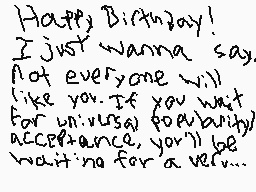 Happy Birthday!
I just wanna say,
Not everyone will
like you. If you wait
for universal popularity/
acceptance, you'll be
waiting for a very...